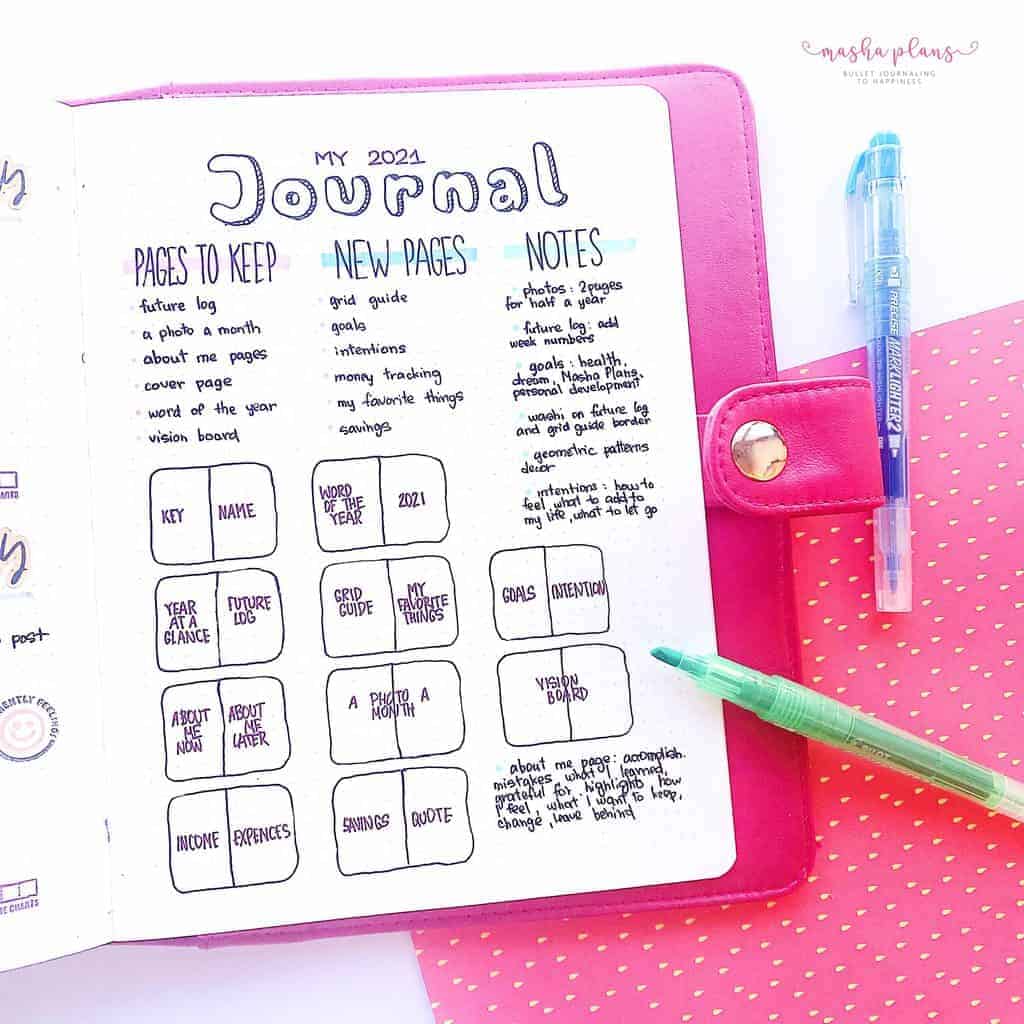 masha plans
BULLET JOURNALING
TO HAPPINESS
MY 2021
Journal
PAGES TO KEEP
future log
a photo a month
about me pages
cover page
word of the year
vision board
NEW PAGES
grid guide
goals
intentions
money tracking
my favorite things
savings
NOTES
photos: 2pages
for half a year
future log: add
week numbers
goals: health,
dream, Masha Plans,
personal development
washi on future log
and grid guide border
geometric patterns
decor
intentions: how to
feel, what to add to
my life, what to let go
KEY
NAME
YEAR
AT A
GLANCE
FUTURE
LOG
ABOUT
ME
NOW
ABOUT
ME
LATER
INCOME
EXPENCES
WORD
OF THE
YEAR
2021
GRID
GUIDE
MY
FAVORITE
THINGS
A PHOTO A
MONTH
SAVINGS
QUOTE
GOALS
INTENTION
VISION
BOARD
about me page: accomplish.
mistakes, what I learned,
grateful for, highlights, how
I feel, what I want to keep,
change, leave behind
post
CHARTS
PRECISE MARKLIGHTER2
PILOT